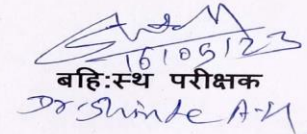 16/05/23
बहि:स्थ परीक्षक
Dr. Shinde A-U